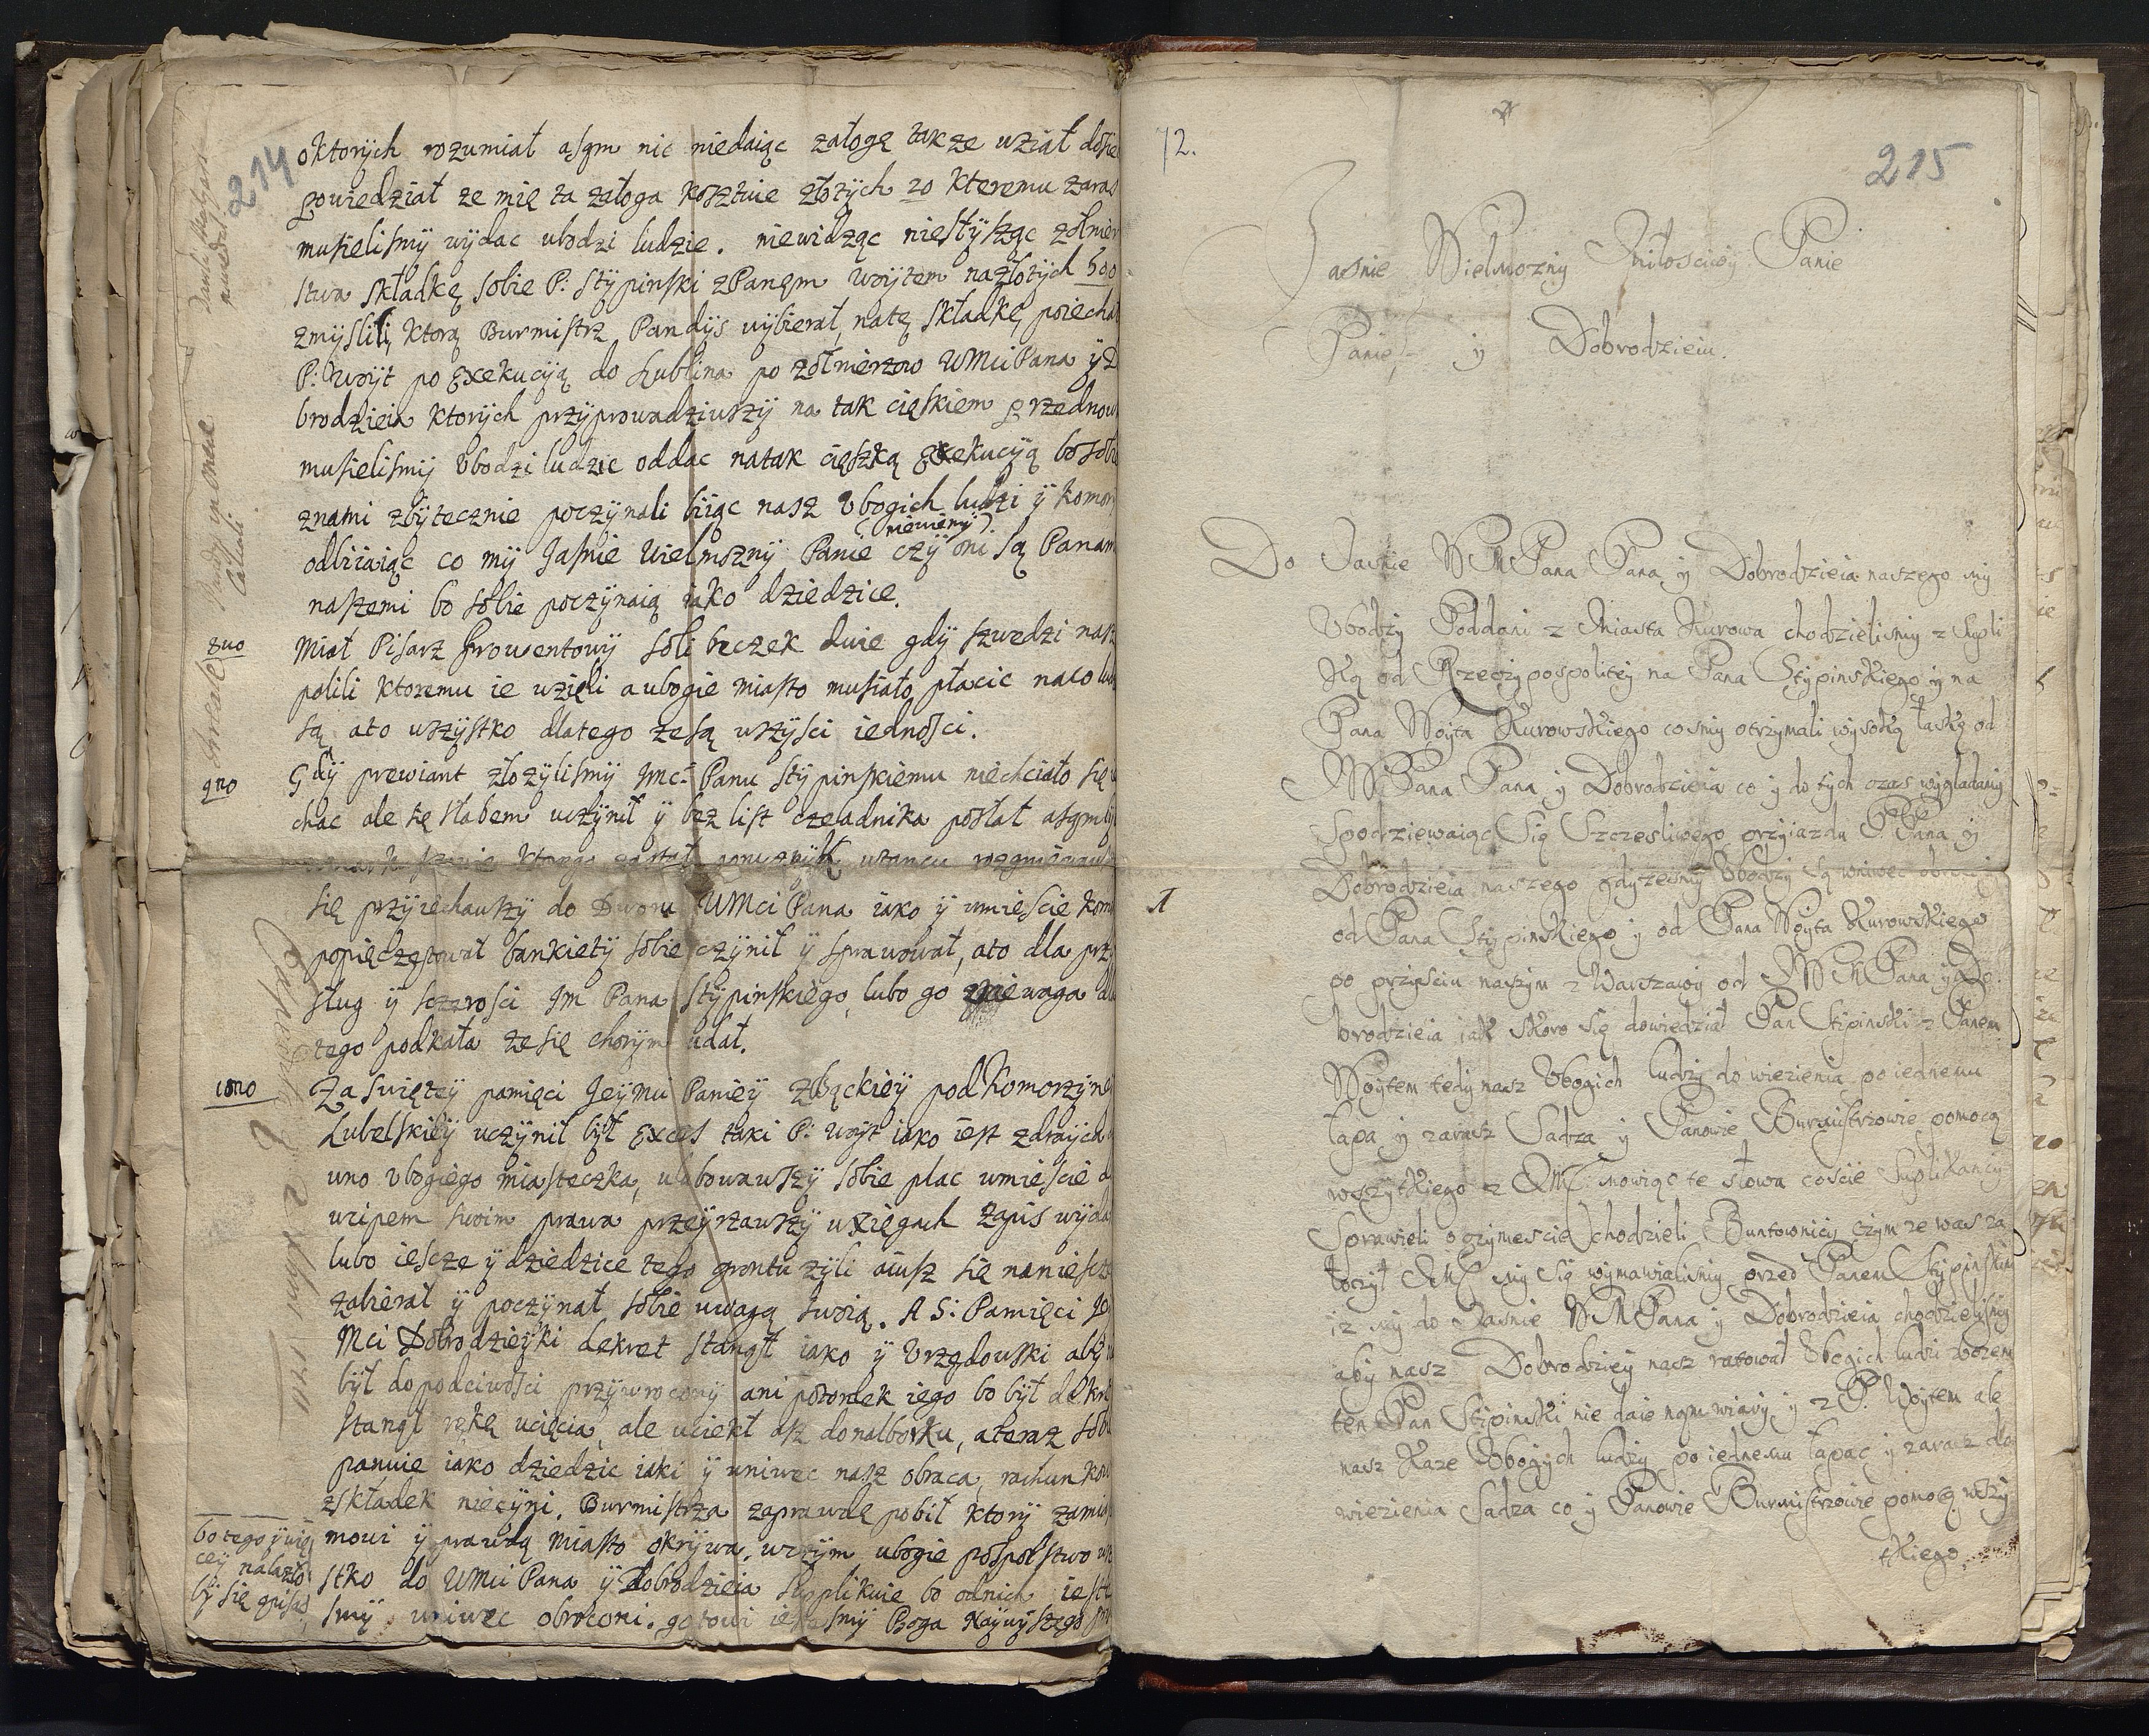 214
oktorych rozumiał asgm nic niedaiąc załogę także uziął
powiedział ze mię ta załoga kosztuie złotych 20 kteremu zaras
musielismy wydac ubodzi ludzie. niewidząc niesłysząc zołnier
stwa składkę sobie P: Stypinski zPanęm woytem nazłotych 500
zmyslili, ktorą Burmistrz Pandys wybierał, natę składkę poiechał
P: woyt po Exekucyą do Lublina po zołnierzow WMci Pana y D
brodzieia ktorych przyprowadziwszy na tak cięskiem przednow
musielismy Vbodzi ludzie oddac natak cięszką Exekucyą bo sobie
znami zbytecznie poczynali biiąc nasz Vbogich ludzi y komor
(niewiemy)
odbiiaiąc co my Jasnie Wielmozny Panie czy oni są Panam
naszemi bo sobie poczynaią iako dziedzice.
8uo Miał Pisarz Prowentowy soli beczek dwie gdy szwedzi nasz
polili ktoremu ie uzięli a ubogie miasto musiało płacic naco lud
są ato wszystko dlatego zesą wszysci iednosci.
9no Gdy prewiant złozylismy Jmc: Panu Stypinskiemu niechciało się
chac ale się słabem uczynił y bez list czeladnika posłał
się przyiechawszy do Dworu WMci Pana iako y wmiescie kom
popięczętował bankiety sobie czynił y sprawował, ato dla prz
sług y sczerosci Jm Pana Stypinskiego, lubo go zniewaga dla
tego podkała zesię chorym udał.
10mo Za swiętey pamięci Jeymu Paniey Zbąckiey podKomorzyney
Lubelskiey uczynił był Exces taki P: woyt iako iest zdraycą
uno vbogiego miasteczka, ulubowawszy sobie plac wmiescie
ucipem swoim prawa przeyrzawszy wxięgach Zapis wyda
lubo iescze y dziedzice tego gruntu zyli aiusz się namiescze
zabierał y poczynał sobie uwagą swoią. A S: Pamięci Je
Mci Dobrodzieyki dekret stanął iako y Vrzędowski aby
był dopodciwosci przywrocony ani potomek iego bo był dekret
stanął rękę ucięcia, ale uciekł asz domalborku, ateraz sobie
panuie iako dziedzic iaki y wniwec nasz obraca, rachunkow
zskładek nieczyni. Burmistrza zaprawdę pobił ktory zamiast
bo tego y wię
cey nalazło
by się spisac
mowi y prawdą miasto okrywa, wczym ubogie pospolstwo wszy
stko do WMci Pana y Dobrodzieia supplikuie bo odnich iest
smy wniwec obroconi. gotowi iestesmy Boga Naywyszego
72.
215
Jasnie Wielmozny Miłosciwy Panie
Panie y Dobrodzieiu.
Do Jasnie WMPana Pana y Dobrodzieia naszego my
Vbodzy Poddani z Miasta Kurowa chodzielismy z Supli
ką od Rzeczypospolitey na Pana Stypinskiego y na
Pana Woyta Kurowskiego cosmy otrzymali wysoką łaskę od
WMPana Pana y Dobrodzieia co y do tych czas wyglądamy
Spodziewaiąc Się Szczesliwego przyiazdu P. Pana y
Dobrodzieia naszego gdyzesmy Vbodzy są wniwec obroceni
1
od Pana Stypinskiego y od Pana Woyta Kurowskiego
po przisciu naszym z Warszawy od WMPana y Do
brodzieia iak skoro się dowiedział Pan Stipinski z Panem
Woytem tedy nasz Vbogich ludzy do wiezienia po iednemu
łapa y zarasz Sadza y Panowie Burmistrzowie pomocą
wszytkiego z mowiąc te słowa coscie Suplikancy
Sprawieli o czymescie chodzieli Buntownicy czym ze was
my się wymawielismy przed Panem Stypinskim
iz my do Jasnie WMPana y Dobrodzieia chodzielismy
aby nasz Dobrodziey nasz ratował Vbogich ludzi zbozem
ten Pan Stipinski nie daie nąm wiary y z P. Woytem ale
nasz Kaze Vbogych ludzy po iednemu łapac y zarasz do
wiezienia Sadza co y Panowie Burmistrzowie pomocą wszy
tkiego